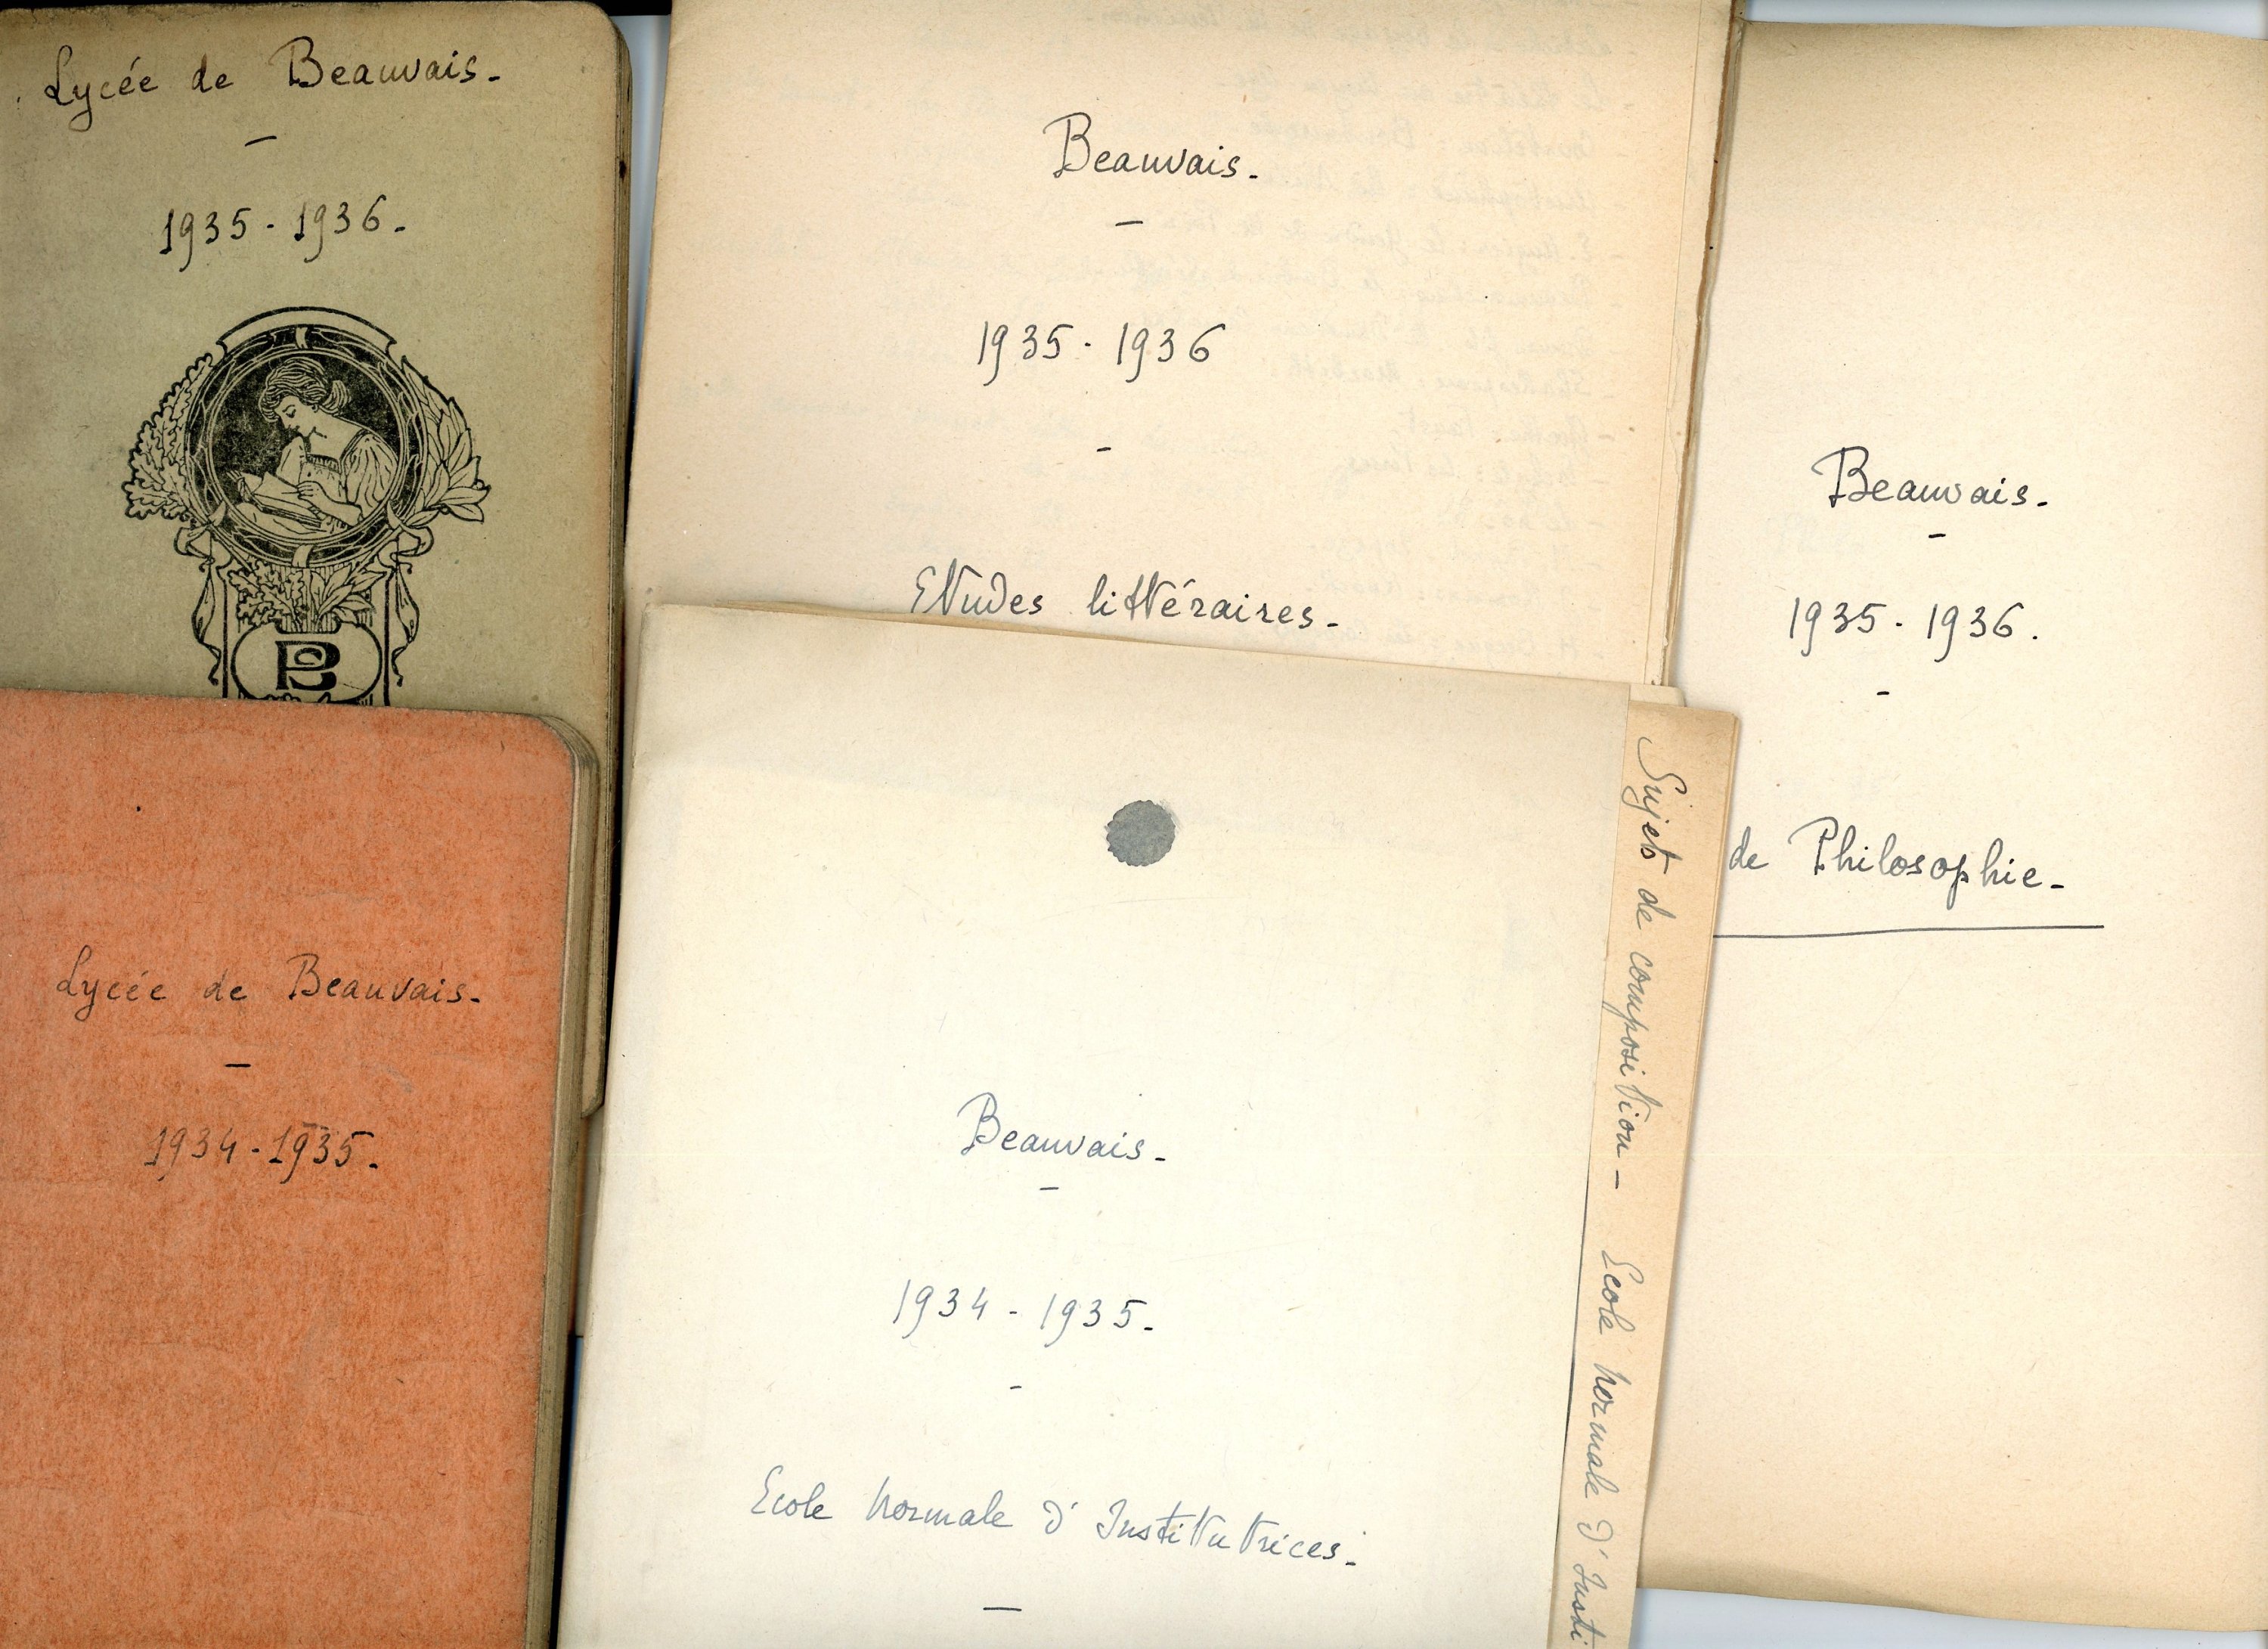 Lycée de Beauvais.
1935-1936.
Lycée de Beauvais.
1934-1935.
Beauvais.
1935-1936
Etudes littéraires.
Beauvais.
1934-1935.
Ecole normale d'Institutrices.
Sujets de composition - Ecole normale d'Insti
Beauvais.
1935-1936.
de Philosophie.